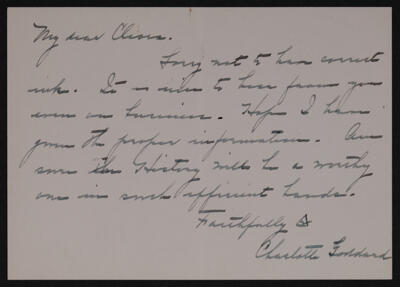 My dear Olivia.
Sorry not to have correct
ink. It is nice to hear from you
even on business. Hope I have
given the proper information. Am
sure the History will be a worthy
one in such efficient hands.
Faithfully Δ
Charlotte Goddard